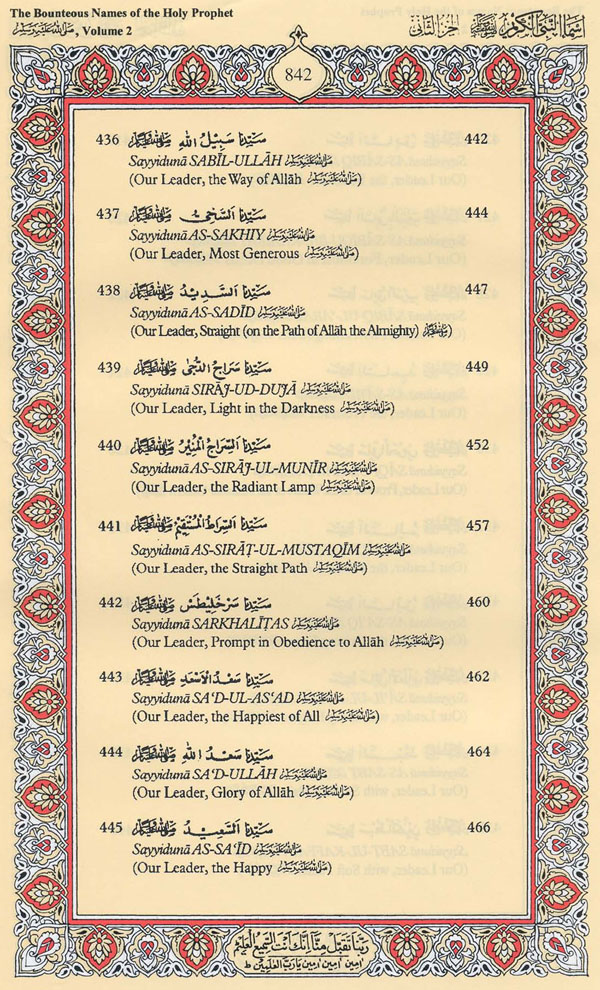 The Bounteous Names of the Holy Prophet
ﷺ, Volume 2
أسماء النبي الكريم ﷺ الجزء الثاني
842
436 سيدنا سبيل الله ﷺ 442
Sayyidunā SABĪL-ULLĀH ﷺ
(Our Leader, the Way of Allāh ﷺ)
437 سيدنا السخي ﷺ 444
Sayyidunā AS-SAKHIY ﷺ
(Our Leader, Most Generous ﷺ)
438 سيدنا السديد ﷺ 447
Sayyidunā AS-SADĪD ﷺ
(Our Leader, Straight (on the Path of Allāh the Almighty) ﷺ)
439 سيدنا سراج الدجى ﷺ 449
Sayyidunā SIRĀJ-UD-DUJĀ ﷺ
(Our Leader, Light in the Darkness ﷺ)
440 سيدنا السراج المنير ﷺ 452
Sayyidunā AS-SIRĀJ-UL-MUNĪR ﷺ
(Our Leader, the Radiant Lamp ﷺ)
441 سيدنا السراط المستقيم ﷺ 457
Sayyidunā AS-SIRĀṬ-UL-MUSTAQĪM ﷺ
(Our Leader, the Straight Path ﷺ)
442 سيدنا سرخليطس ﷺ 460
Sayyidunā SARKHALĪṬAS ﷺ
(Our Leader, Prompt in Obedience to Allāh ﷺ)
443 سيدنا سعد الاسعد ﷺ 462
Sayyidunā SA‘D-UL-AS‘AD ﷺ
(Our Leader, the Happiest of All ﷺ)
444 سيدنا سعد الله ﷺ 464
Sayyidunā SA‘D-ULLĀH ﷺ
(Our Leader, Glory of Allāh ﷺ)
445 سيدنا السعيد ﷺ 466
Sayyidunā AS-SA‘ĪD ﷺ
(Our Leader, the Happy ﷺ)
ربنا تقبل منا انك انت السميع العليم
امين امين امين يا رب العلمين ط